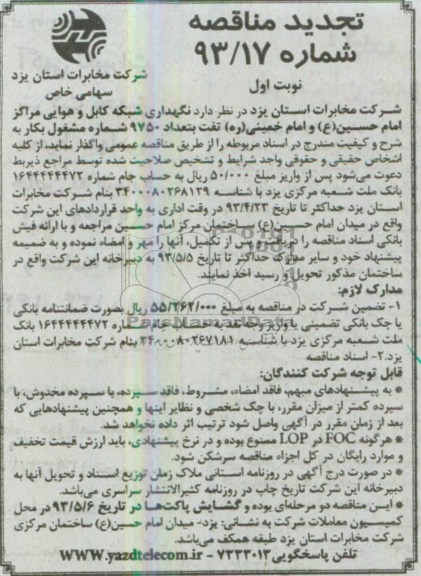 تجدید مناقصه
شماره ۹۳/۱۷
نوبت اول
شرکت مخابرات استان یزد
سهامی خاص
شرکت مخابرات استان یزد در نظر دارد نگهداری شبکه کابل و هوایی مراکز
امام حسین(ع) و امام خمینی(ره) تفت بتعداد ۹۷۵۰ شماره مشغول بکار به
شرح و کیفیت مندرج در اسناد مربوطه را از طریق مناقصه عمومی واگذار نماید، از کلیه
اشخاص حقیقی و حقوقی واجد شرایط و تشخیص صلاحیت شده توسط مراجع ذیربط
دعوت می‌شود پس از واریز مبلغ ۵۰/۰۰۰ ریال به حساب جام شماره ۱۶۴۴۴۴۴۴۷۲
بانک ملت شعبه مرکزی یزد با شناسه ۳۴۰۰۰۸۰۲۶۸۱۳۹ بنام شرکت مخابرات
استان یزد حداکثر تا تاریخ ۹۳/۴/۲۳ در وقت اداری به واحد قراردادهای این شرکت
واقع در میدان امام حسین(ع) ساختمان مرکز امام حسین مراجعه و با ارائه فیش
بانکی اسناد مناقصه را دریافت و پس از تکمیل، آنها را مهر و امضاء نموده و به ضمیمه
پیشنهاد خود و سایر مدارک حداکثر تا تاریخ ۹۳/۵/۵ به دبیرخانه این شرکت واقع در
ساختمان مذکور تحویل و رسید اخذ نمایند.
مدارک لازم:
۱- تضمین شرکت در مناقصه به مبلغ ۵۵/۲۶۲/۰۰۰ ریال بصورت ضمانتنامه بانکی
یا چک بانکی تضمینی یا واریز وجه نقد به حساب جام شماره ۱۶۴۴۴۴۴۴۷۲ بانک
ملت شعبه مرکزی یزد با شناسه ۳۴۰۰۰۸۰۲۶۷۱۸۱ بنام شرکت مخابرات استان
یزد.۲- اسناد مناقصه
قابل توجه شرکت کنندگان:
* به پیشنهادهای مبهم، فاقد امضاء، مشروط، فاقد سپرده، با سپرده مخدوش، با
سپرده کمتر از میزان مقرر، با چک شخصی و نظایر اینها و همچنین پیشنهادهایی که
بعد از زمان مقرر در آگهی واصل شود ترتیب اثر داده نخواهد شد.
* هرگونه FOC در LOP ممنوع بوده و در نرخ پیشنهادی، باید ارزش قیمت تخفیف
و موارد رایگان در کل اجزاء مناقصه سرشکن شود.
* در صورت درج آگهی در روزنامه استانی ملاک زمان توزیع اسناد و تحویل آنها به
دبیرخانه این شرکت تاریخ چاپ در روزنامه کثیرالانتشار سراسری می‌باشد.
* این مناقصه دو مرحله‌ای بوده و گشایش پاکت‌ها در تاریخ ۹۳/۵/۶ در محل
کمیسیون معاملات شرکت به نشانی: یزد- میدان امام حسین(ع) ساختمان مرکزی
شرکت مخابرات استان یزد طبقه همکف می‌باشد.
تلفن پاسخگویی ۷۲۳۳۰۱۳ - WWW.yazdtelecom.ir